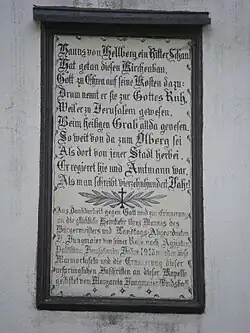 Hanns von Hellberg ein Ritter
Hat getan diesen Kirchenbau,
Gott zu Ehren auf seine Kosten dazu:
Drum nennt er sie zur Gottes Ruh,
Weil er zu Jerusalem gewesen,
Beim heiligen Grab allda genesen.
So weit von da zum Ölberg sei
Als dort von jener Stadt herbei.
Er regieret hie und Amtmann war,
Als man schreibt vierzehnhundert Jahr!
Aus Dankbarkeit gegen Gott und zur Erinnerung
an die glückliche Heimkehr ihres Mannes des
Bürgermeisters und Landtags-Abgeordneten
von seiner Reise nach
ließ
Marmortafel und die Erneuerung dieser
ursprünglichen Inschriften an dieser Kapelle
Margareta